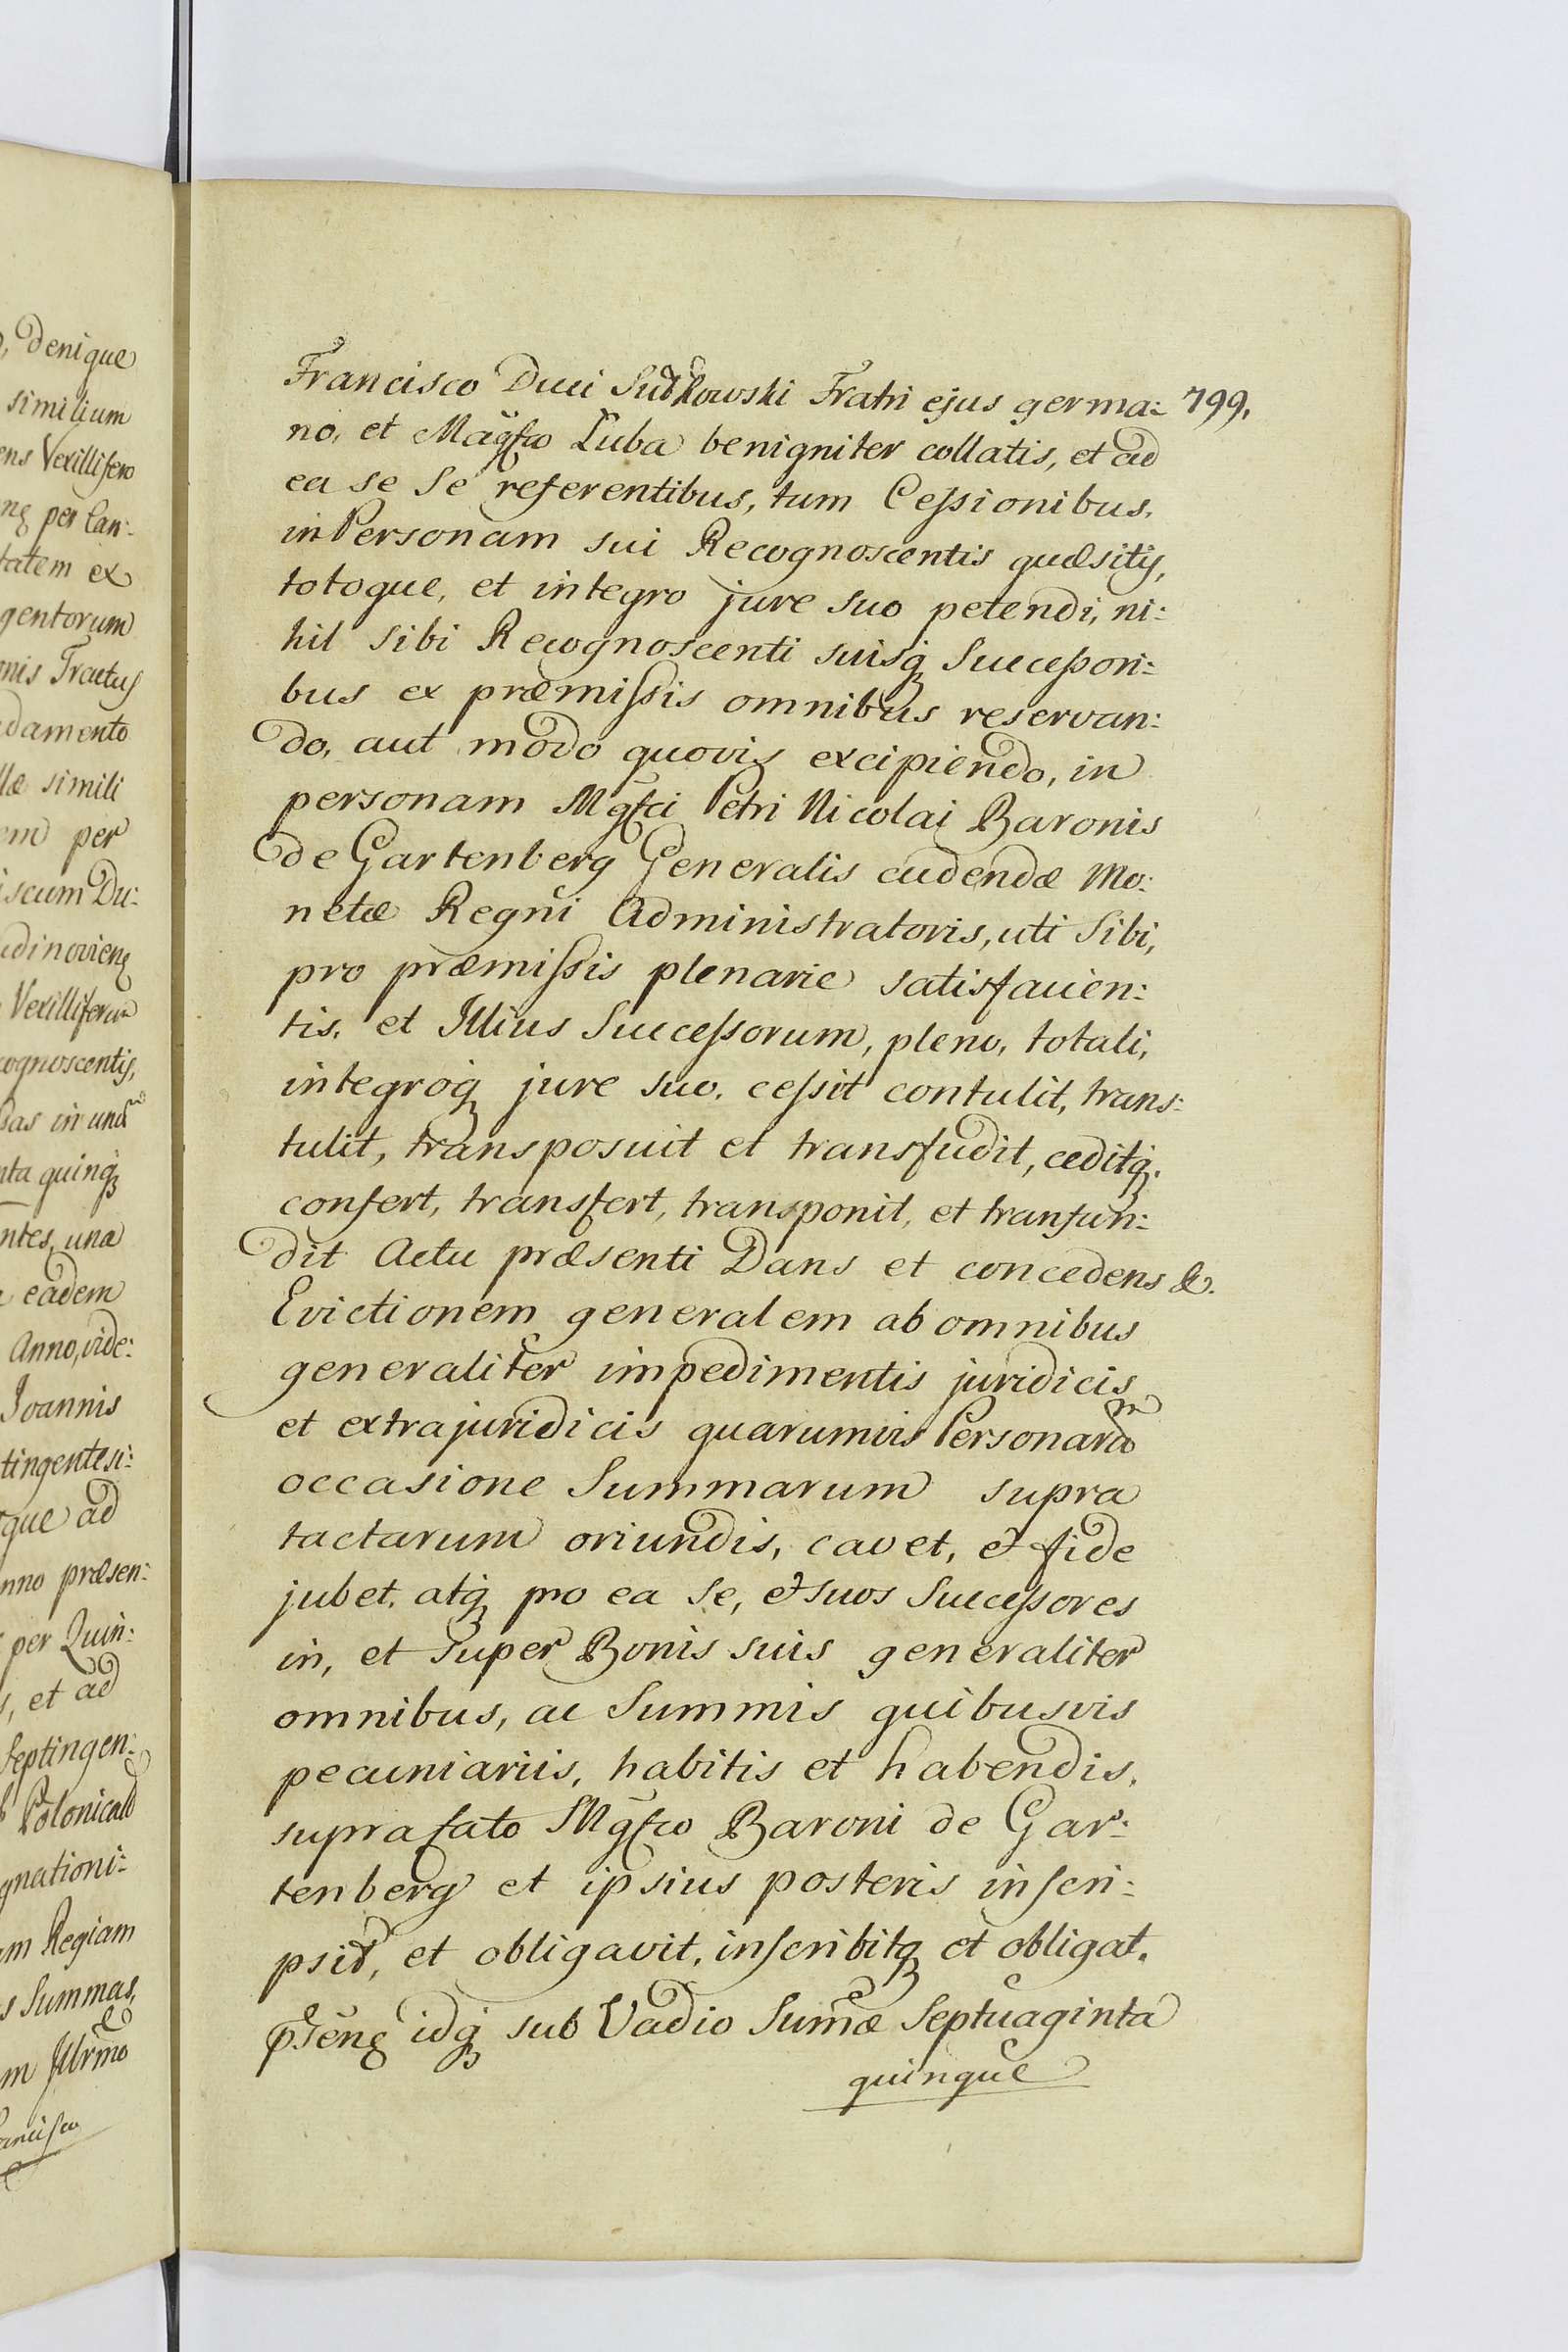 denique
similium
ens Vexillifero
ng per Can:
tatem ex
gentorum
nis Tractus
damento
læ simili
em per
iscum Du:
udinoviens
Vexilliferum
cognoscentis,
das in und
nta quinq
ntes, una
eadem
Anno, vide:
Joannis
tingentesi:
que ad
nno præsen:
per Quin:
s, et ad
septingen:
Polonical
gnationi:
m Regiam
s Summas,
m Jllrmo
ancisco
Francisco Duci Sudkowski Fratri ejus germa: 799.
no, et Magfco Łuba benigniter collatis, et ad
ea se se referentibus, tum Cessionibus,
in Personam sui Recognoscentis quæsitis,
totoque, et integro jure suo petendi, ni:
hil sibi Recognoscenti suisq Successori:
bus ex præmissis omnibus reservan:
do, aut modo quovis excipiendo, in
personam Mgfci Petri Nicolai Baronis
de Gartenberg Generalis cudendæ Mo:
netæ Regni Administratoris, uti sibi,
pro præmissis plenarie satisfacien:
tis, et Illius Successorum, pleno, totali,
integroq jure suo, cessit contulit, trans:
tulit, transposuit et transfudit, ceditq.
confert, transfert, transponit, et transfun:
dit Actu præsenti Dans et concedens &.
Evictionem generalem ab omnibus
generaliter impedimentis juridicis
et extrajuridicis quarumvis Personarum
occasione Summarum supra
tactarum oriundis, cavet, et fide
jubet, atq pro ea se, et suos Successores
in, et super Bonis suis generaliter
omnibus, ac Summis quibusvis
pecuniariis, habitis et habendis,
suprafato Mgfco Baroni de Gar:
tenberg et ipsius posteris inscri:
psit, et obligavit, inscribitq et obligat,
pseng idq sub Vadio Sumæ Septuaginta
quinque